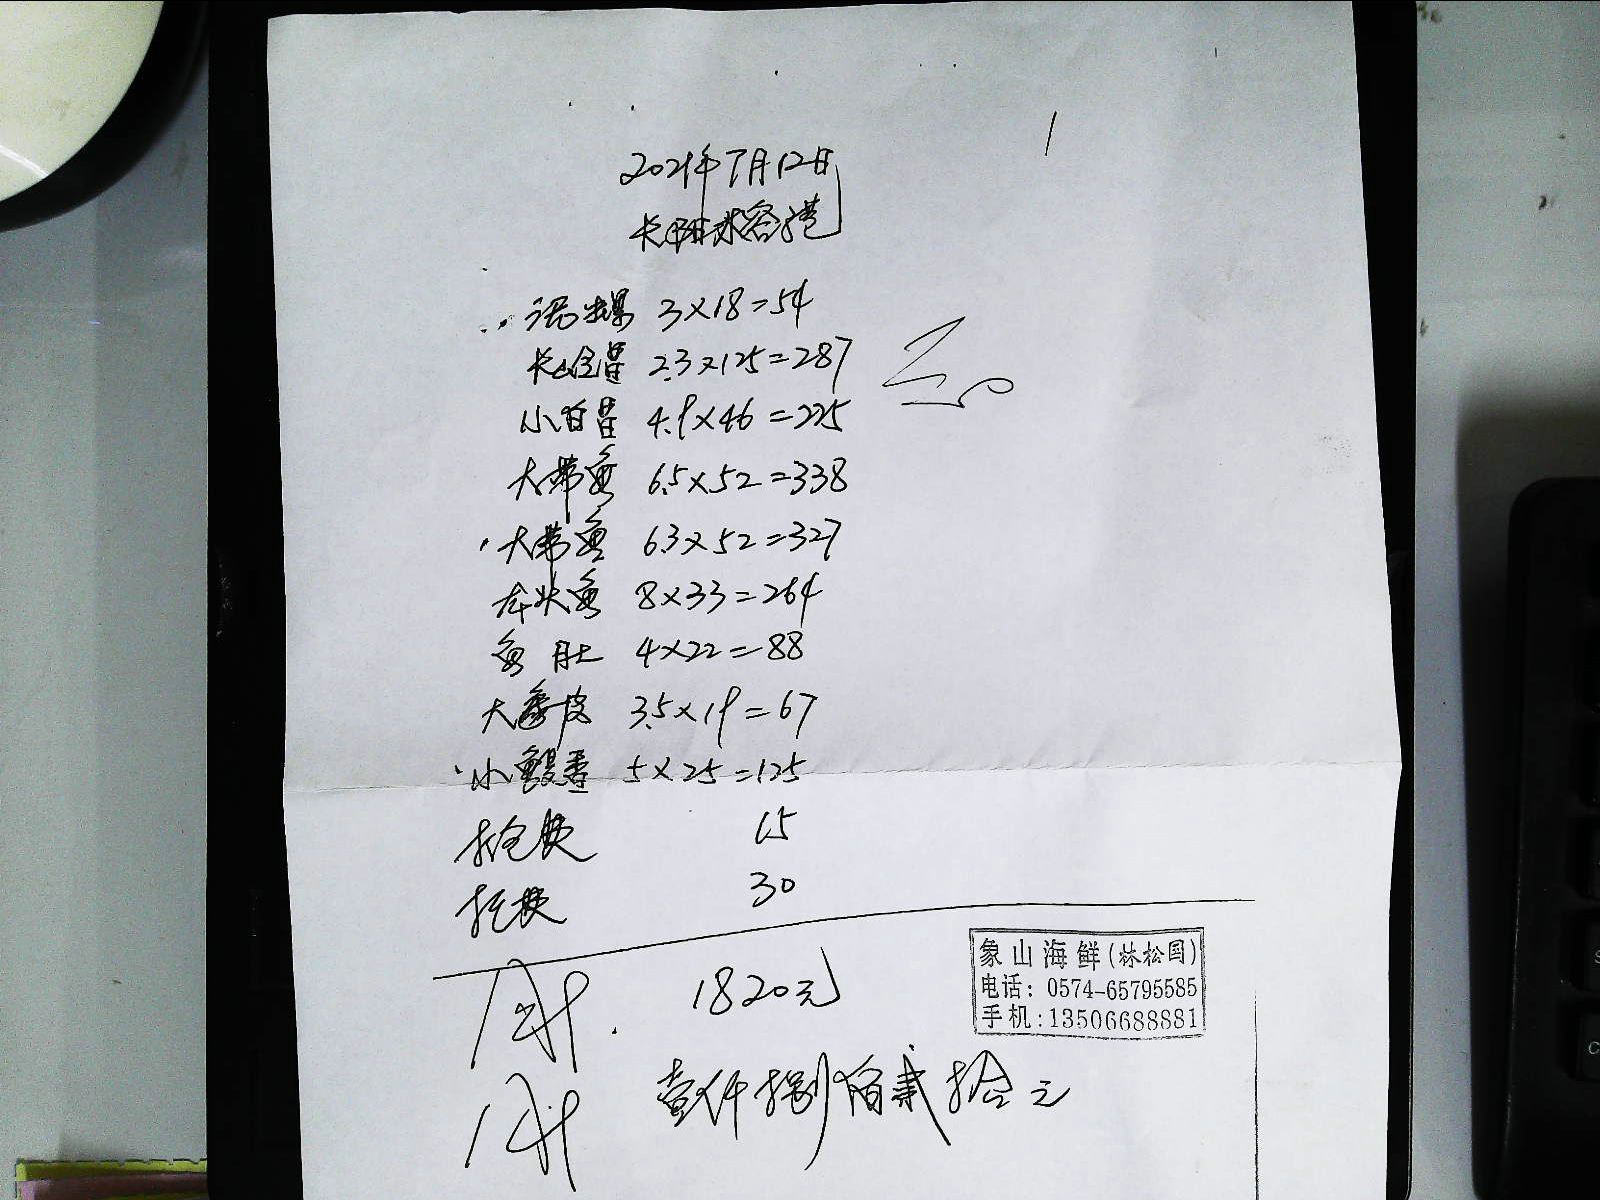 2021年7月12日
长阳林容港
泥螺 3×18=54
长 2.3×125=287
小白 4.9×46=225
大带鱼 6.5×52=338
大带鱼 6.3×52=327
鱼 8×33=264
鱼肚 4×22=88
大鱼皮 3.5×19=67
小鳗 5×25=125
15
托费 30
1820元
壹仟捌佰贰拾元
象山海鲜(林松国)
电话: 0574-65795585
手机:13506688881